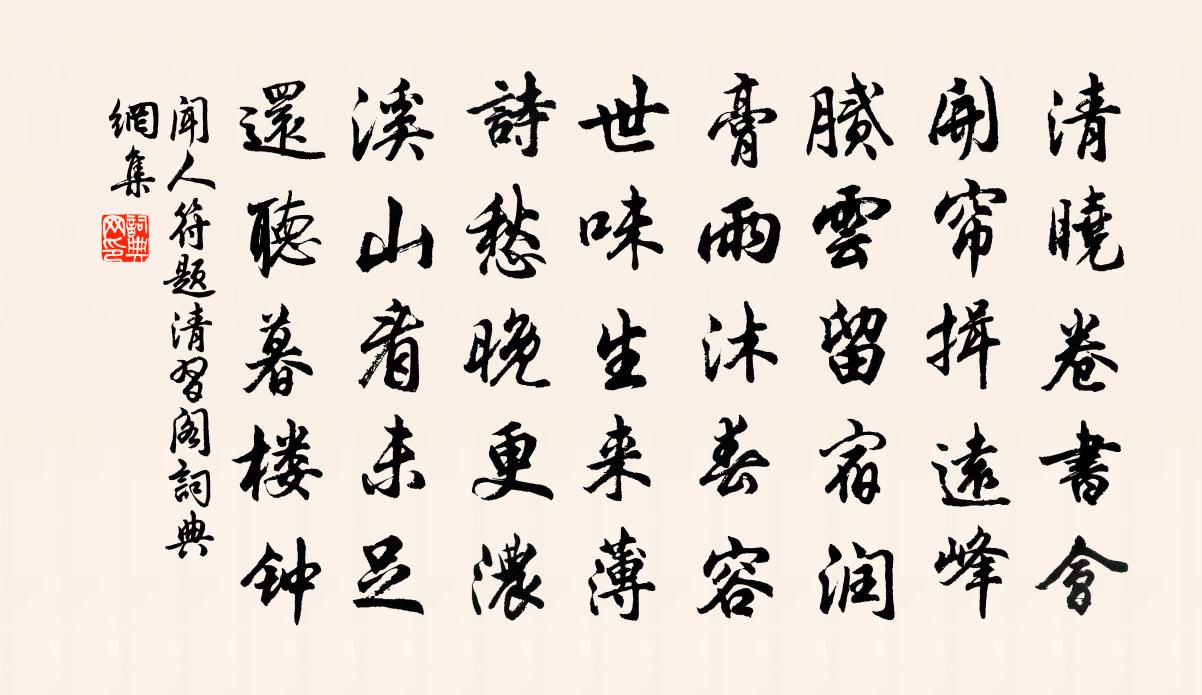 清曉卷書會
開帘揖遠峰
膩雲留宿润
膏雨沐春容
世味生来薄
詩愁晚更濃
溪山看未足
還聽暮楼钟
闻人符题清習阁詞典
網集
詞典
网印